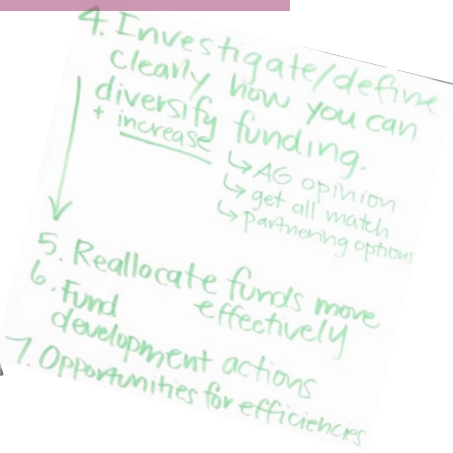 4. Investigate/define
clearly how you can
diversify funding.
+ increase
↳ AG opinion
↳ get all match
↳ partnering options
5. Reallocate funds move
effectively
6. Fund
development actions
7. Opportunities for efficiencies